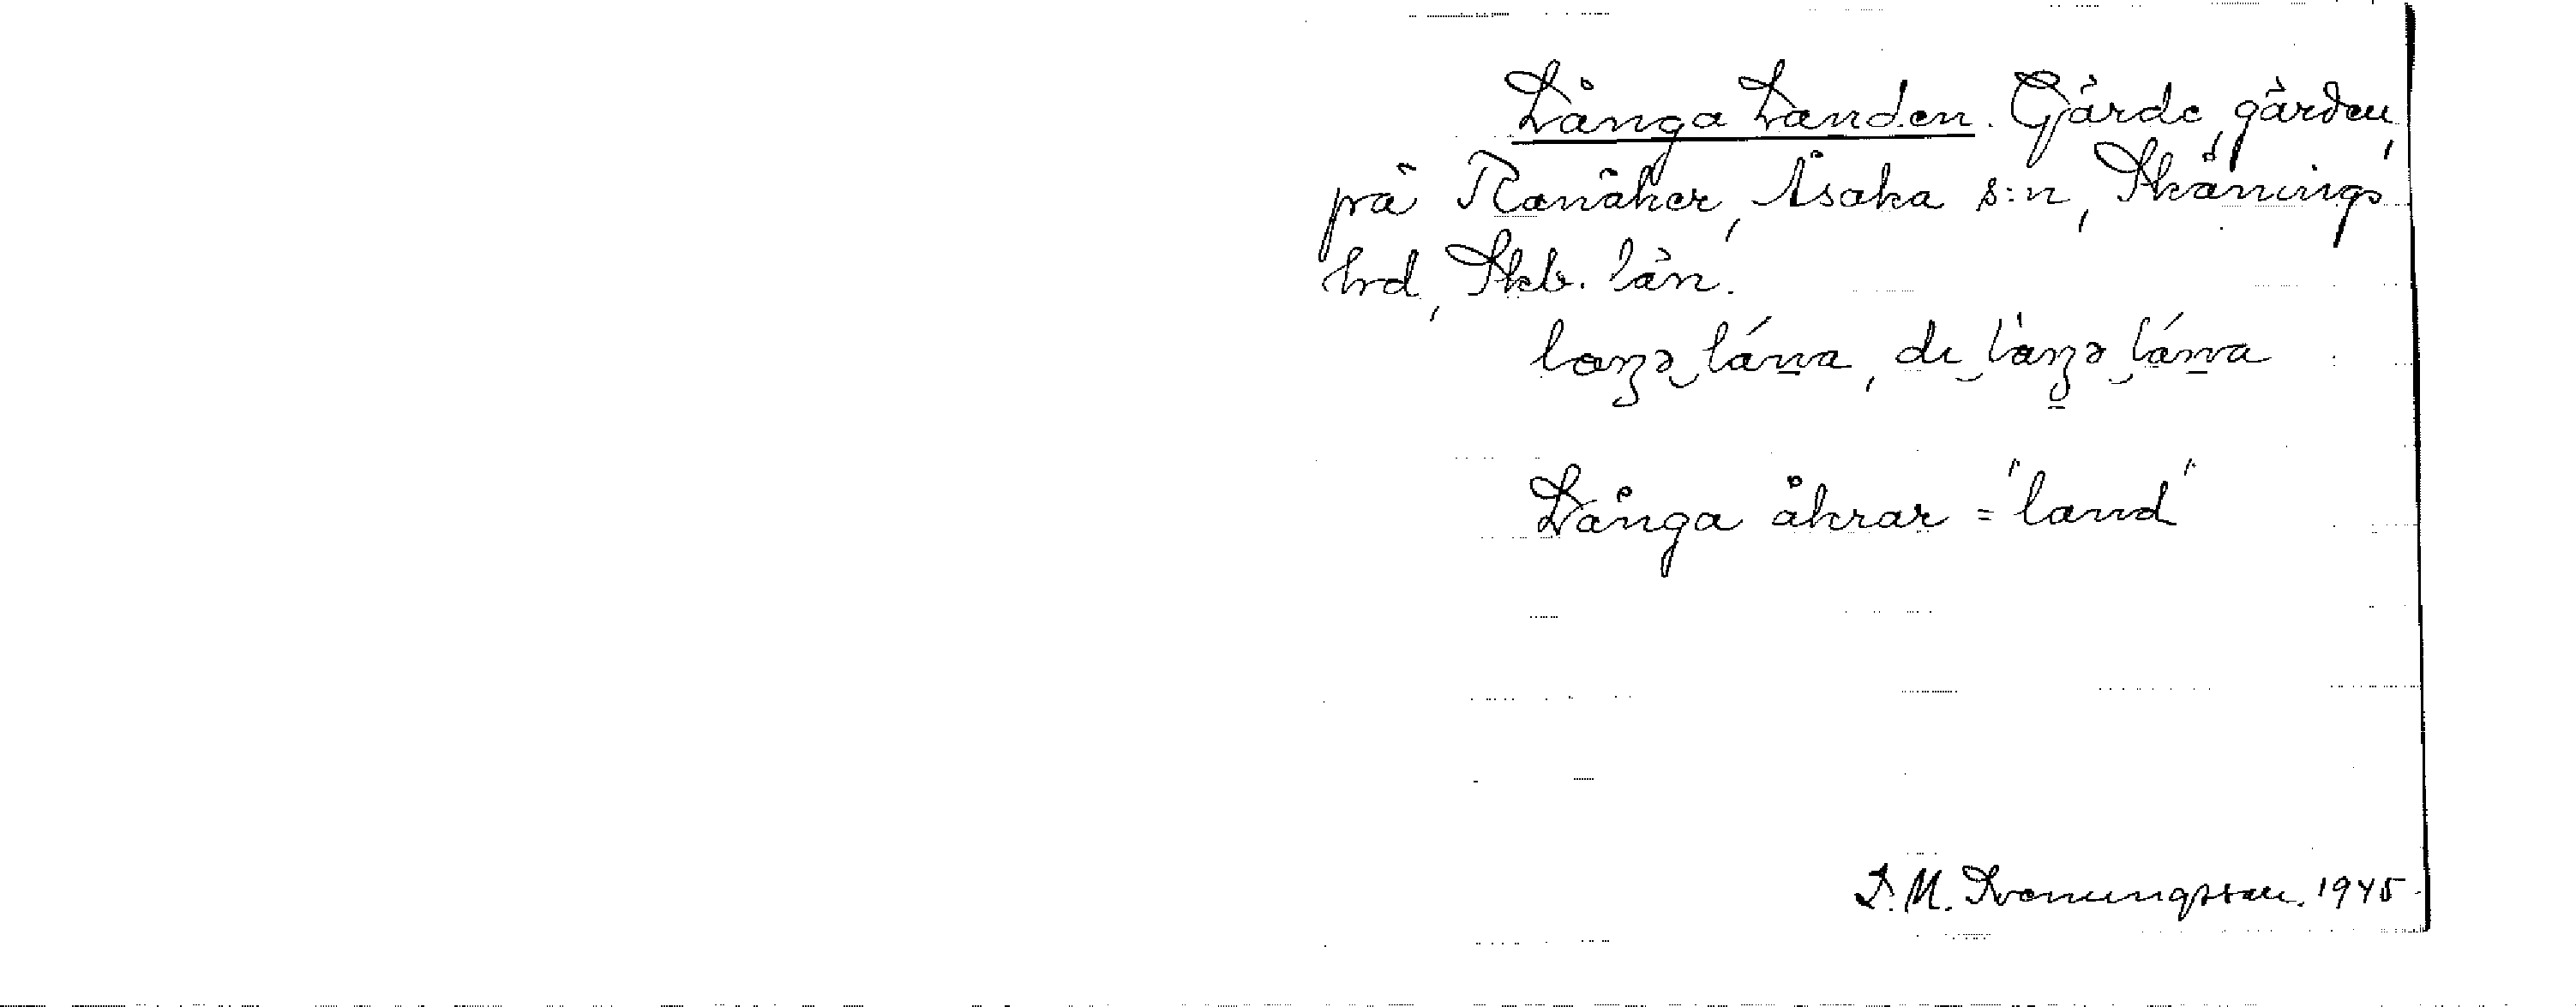 Långa Landen. Gärde, gården,
på Ranåker, Åsaka s:n, Skånings
hrd, Skb. län.
laŋə‿láṉa, di‿làŋə‿láṉa
Långa åkrar = "land"
1945